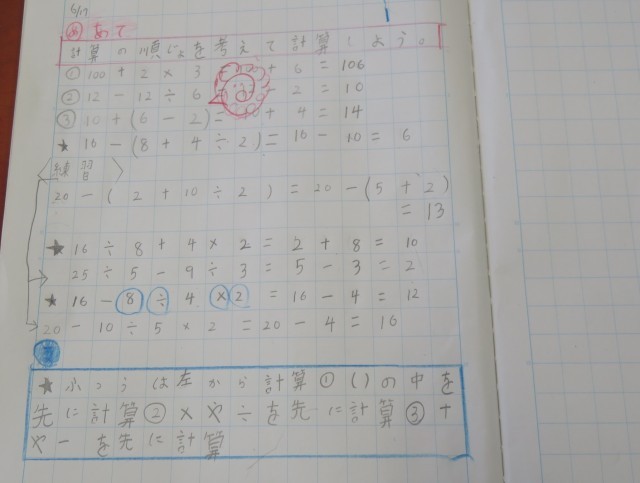 5/17
め あて
計算の順じょを考えて計算しよう。
① 100 + 2 × 3 = 100 + 6 = 106
② 12 - 12 ÷ 6 = 12 - 2 = 10
③ 10 + (6 - 2) = 10 + 4 = 14
★ 16 - (8 + 4 ÷ 2) = 16 - 10 = 6
〈練習〉
20 - ( 2 + 10 ÷ 2 ) = 20 - (5 + 2)
= 13
★ 16 ÷ 8 + 4 × 2 = 2 + 8 = 10
25 ÷ 5 - 9 ÷ 3 = 5 - 3 = 2
★ 16 - 8 ÷ 4 × 2 = 16 - 4 = 12
20 - 10 ÷ 5 × 2 = 20 - 4 = 16
★ふつうは左から計算①()の中を
先に計算②×や÷を先に計算③+
や-を先に計算